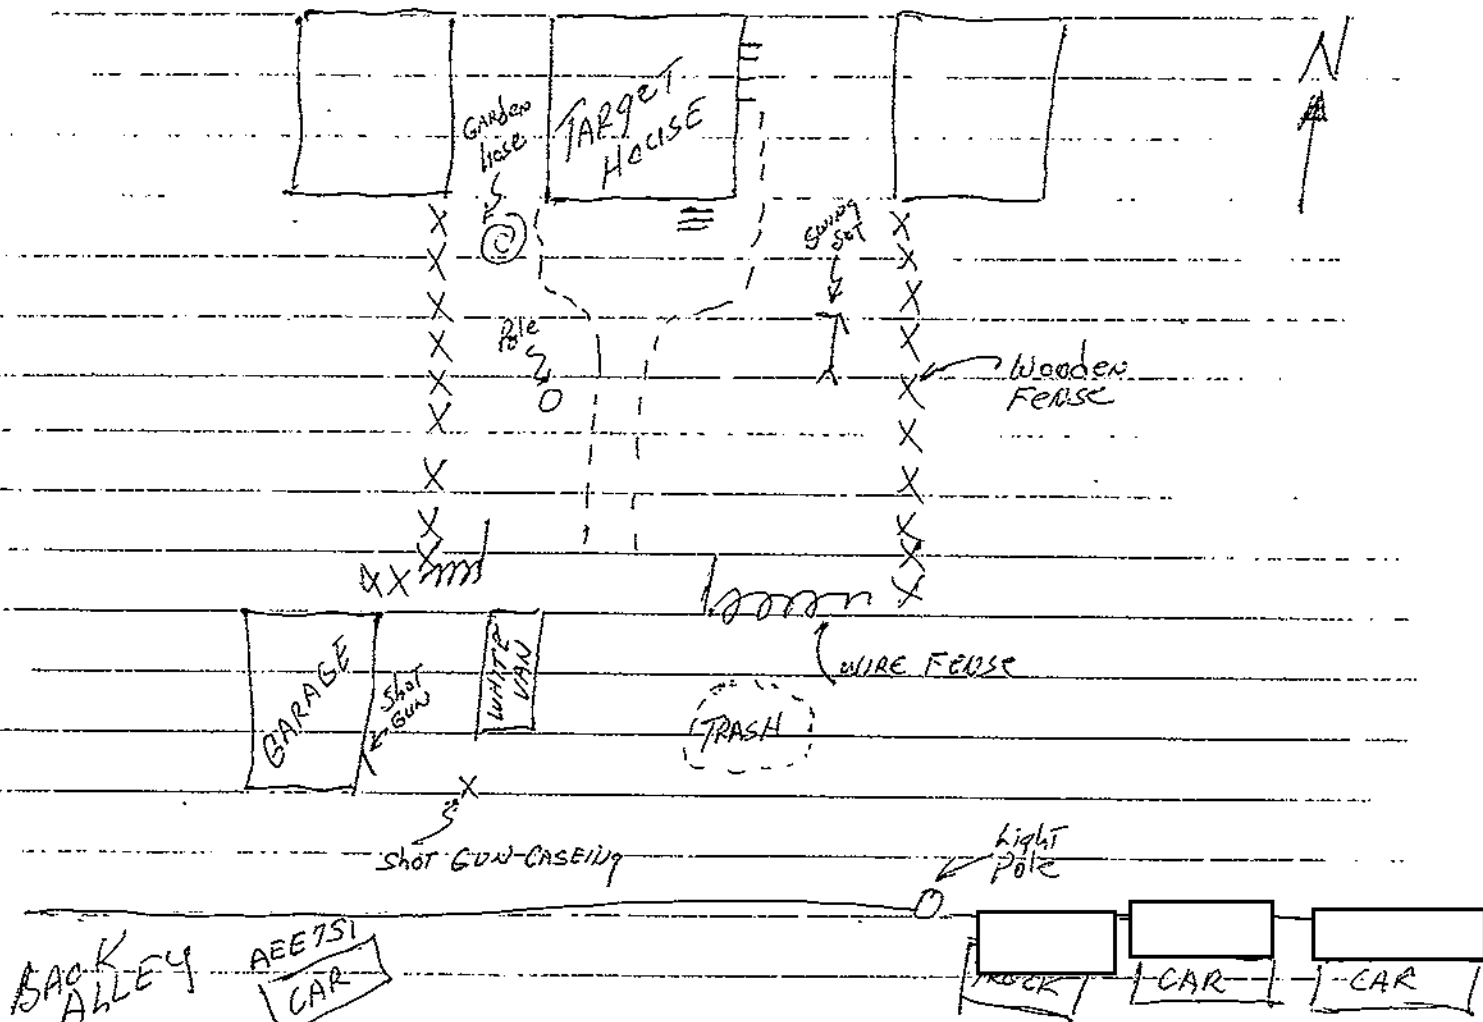 N
GARDEN
HOSE
TARGET
HOUSE
SWING
SET
Pole
Wooden
FENSE
GARAGE
SHOT
GUN
WHITE
VAN
WIRE FENSE
TRASH
SHOT GUN-CASEING
Light
Pole
BACK
ALLEY
AEE751
CAR
CAR
CAR